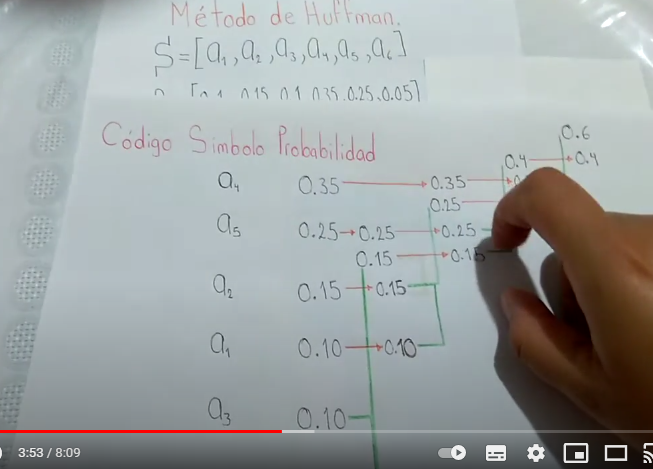 Método de Huffman.
S=[a₁,a₂,a₃,a₄,a₅,a₆]
0.25,0.05]
Código Símbolo Probabilidad
0.6
0.4 0.4
a₄ 0.35 0.35
0.25
a₅ 0.25 0.25 0.25
0.15 0.15
a₂ 0.15 0.15
a₁ 0.10 0.10
a₃ 0.10
3:53 / 8:09